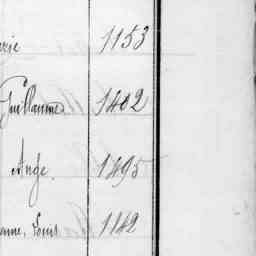 rie 1153
Guillaume 1402
Ange. 1495
anne, Louis 1142